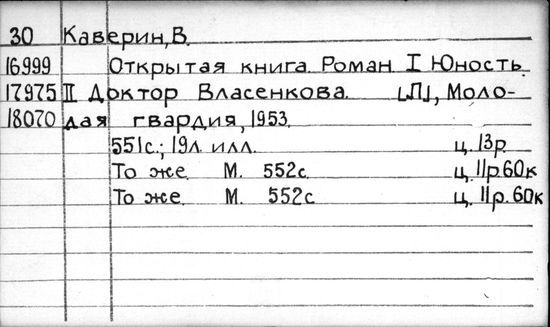 30 Каверин, В.
16999 Открытая книга. Роман I Юность
17975 II Доктор Власенкова. [Л], Моло-
18070 дая гвардия, 1953.
551с.; 19л. илл. ц. 13р
То же. М. 552с. ц. 11р.60к
То же. М. 552с. ц. 11р.60к